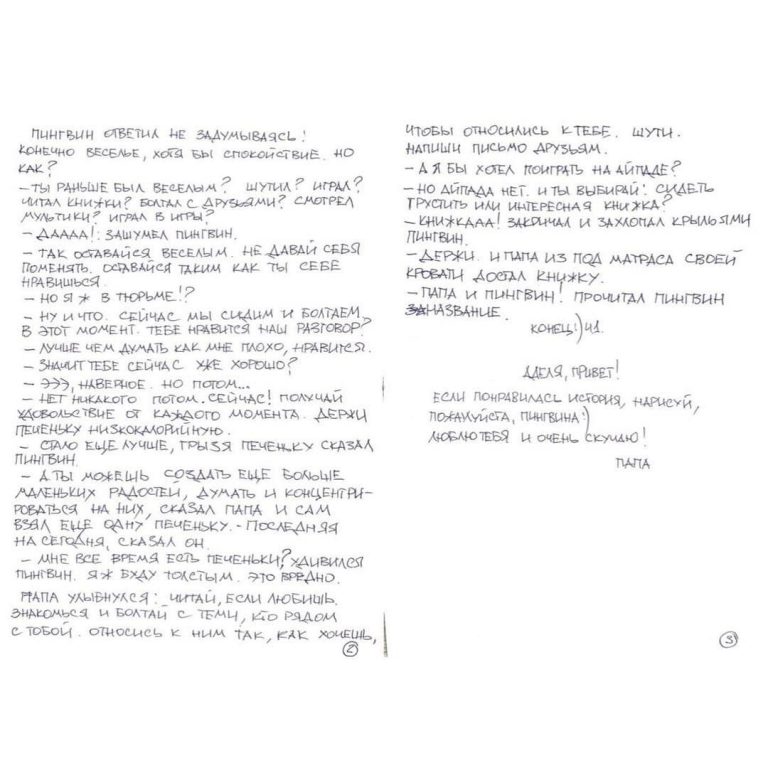 ПИНГВИН ОТВЕТИЛ НЕ ЗАДУМЫВАЯСЬ!
КОНЕЧНО ВЕСЕЛЬЕ, ХОТЯ БЫ СПОКОЙСТВИЕ. НО
КАК?
– ТЫ РАНЬШЕ БЫЛ ВЕСЕЛЫМ? ШУТИЛ? ИГРАЛ?
ЧИТАЛ КНИЖКИ? БОЛТАЛ С ДРУЗЬЯМИ? СМОТРЕЛ
МУЛЬТИКИ? ИГРАЛ В ИГРЫ?
– ДАААА!: ЗАШУМЕЛ ПИНГВИН.
– ТАК ОСТАВАЙСЯ ВЕСЕЛЫМ. НЕ ДАВАЙ СЕБЯ
ПОМЕНЯТЬ. ОСТАВАЙСЯ ТАКИМ КАК ТЫ СЕБЕ
НРАВИШЬСЯ.
– НО Я Ж В ТЮРЬМЕ!?
– НУ И ЧТО. СЕЙЧАС МЫ СИДИМ И БОЛТАЕМ.
В ЭТОТ МОМЕНТ. ТЕБЕ НРАВИТСЯ НАШ РАЗГОВОР?
– ЛУЧШЕ ЧЕМ ДУМАТЬ КАК МНЕ ПЛОХО, НРАВИТСЯ.
– ЗНАЧИТ ТЕБЕ СЕЙЧАС УЖЕ ХОРОШО?
– ЭЭЭ, НАВЕРНОЕ. НО ПОТОМ...
– НЕТ НИКАКОГО ПОТОМ. СЕЙЧАС! ПОЛУЧАЙ
УДОВОЛЬСТВИЕ ОТ КАЖДОГО МОМЕНТА. ДЕРЖИ
ПЕЧЕНЬКУ НИЗКОКАЛОРИЙНУЮ.
– СТАЛО ЕЩЕ ЛУЧШЕ, ГРЫЗЯ ПЕЧЕНЬКУ СКАЗАЛ
ПИНГВИН.
– А ТЫ МОЖЕШЬ СОЗДАТЬ ЕЩЕ БОЛЬШЕ
МАЛЕНЬКИХ РАДОСТЕЙ, ДУМАТЬ И КОНЦЕНТРИ-
РОВАТЬСЯ НА НИХ, СКАЗАЛ ПАПА И САМ
ВЗЯЛ ЕЩЕ ОДНУ ПЕЧЕНЬКУ. – ПОСЛЕДНЯЯ
НА СЕГОДНЯ, СКАЗАЛ ОН.
– МНЕ ВСЕ ВРЕМЯ ЕСТЬ ПЕЧЕНЬКИ? УДИВИЛСЯ
ПИНГВИН. Я Ж БУДУ ТОЛСТЫМ. ЭТО ВРЕДНО.
ПАПА УЛЫБНУЛСЯ: ЧИТАЙ, ЕСЛИ ЛЮБИШЬ.
ЗНАКОМЬСЯ И БОЛТАЙ С ТЕМИ, КТО РЯДОМ
С ТОБОЙ. ОТНОСИСЬ К НИМ ТАК, КАК ХОЧЕШЬ,
2
ЧТОБЫ ОТНОСИЛИСЬ К ТЕБЕ. ШУТИ.
НАПИШИ ПИСЬМО ДРУЗЬЯМ.
– А Я БЫ ХОТЕЛ ПОИГРАТЬ НА АЙПАДЕ?
– НО АЙПАДА НЕТ. И ТЫ ВЫБИРАЙ: СИДЕТЬ
ГРУСТИТЬ ИЛИ ИНТЕРЕСНАЯ КНИЖКА?
– КНИЖКААА! ЗАКРИЧАЛ И ЗАХЛОПАЛ КРЫЛЬЯМИ
ПИНГВИН.
– ДЕРЖИ. И ПАПА ИЗ ПОД МАТРАСА СВОЕЙ
КРОВАТИ ДОСТАЛ КНИЖКУ.
– ПАПА И ПИНГВИН! ПРОЧИТАЛ ПИНГВИН
НАЗВАНИЕ.
КОНЕЦ:) Ч1.
АДЕЛЯ, ПРИВЕТ!
ЕСЛИ ПОНРАВИЛАСЬ ИСТОРИЯ, НАРИСУЙ,
ПОЖАЛУЙСТА, ПИНГВИНА:)
ЛЮБЛЮ ТЕБЯ И ОЧЕНЬ СКУЧАЮ!
ПАПА
3